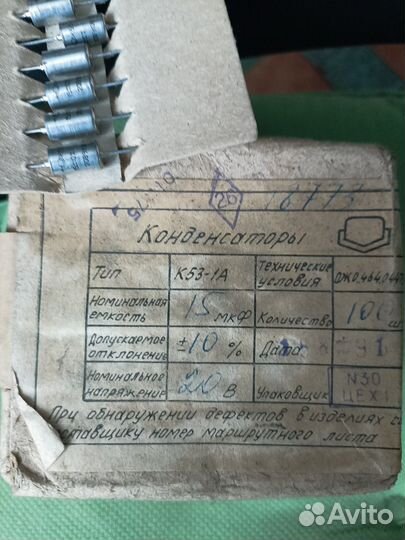 ОТК 75
26
18773
Конденсаторы
Тип К53-1А Технические условия ОЖ0.464.044
Номинальная емкость 15 мкФ Количество 100 ш
Допускаемое отклонение ±10 % Дата 91
Номинальное напряжение 20 В Упаковщик N30 ЦЕХ1
При обнаружении дефектов в изделиях
номер маршрутного листа
Avito